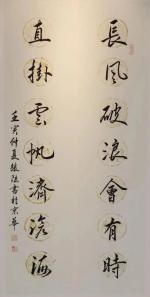 長風破浪會有時
直掛雲帆濟滄海
壬寅仲夏張陸書於京華